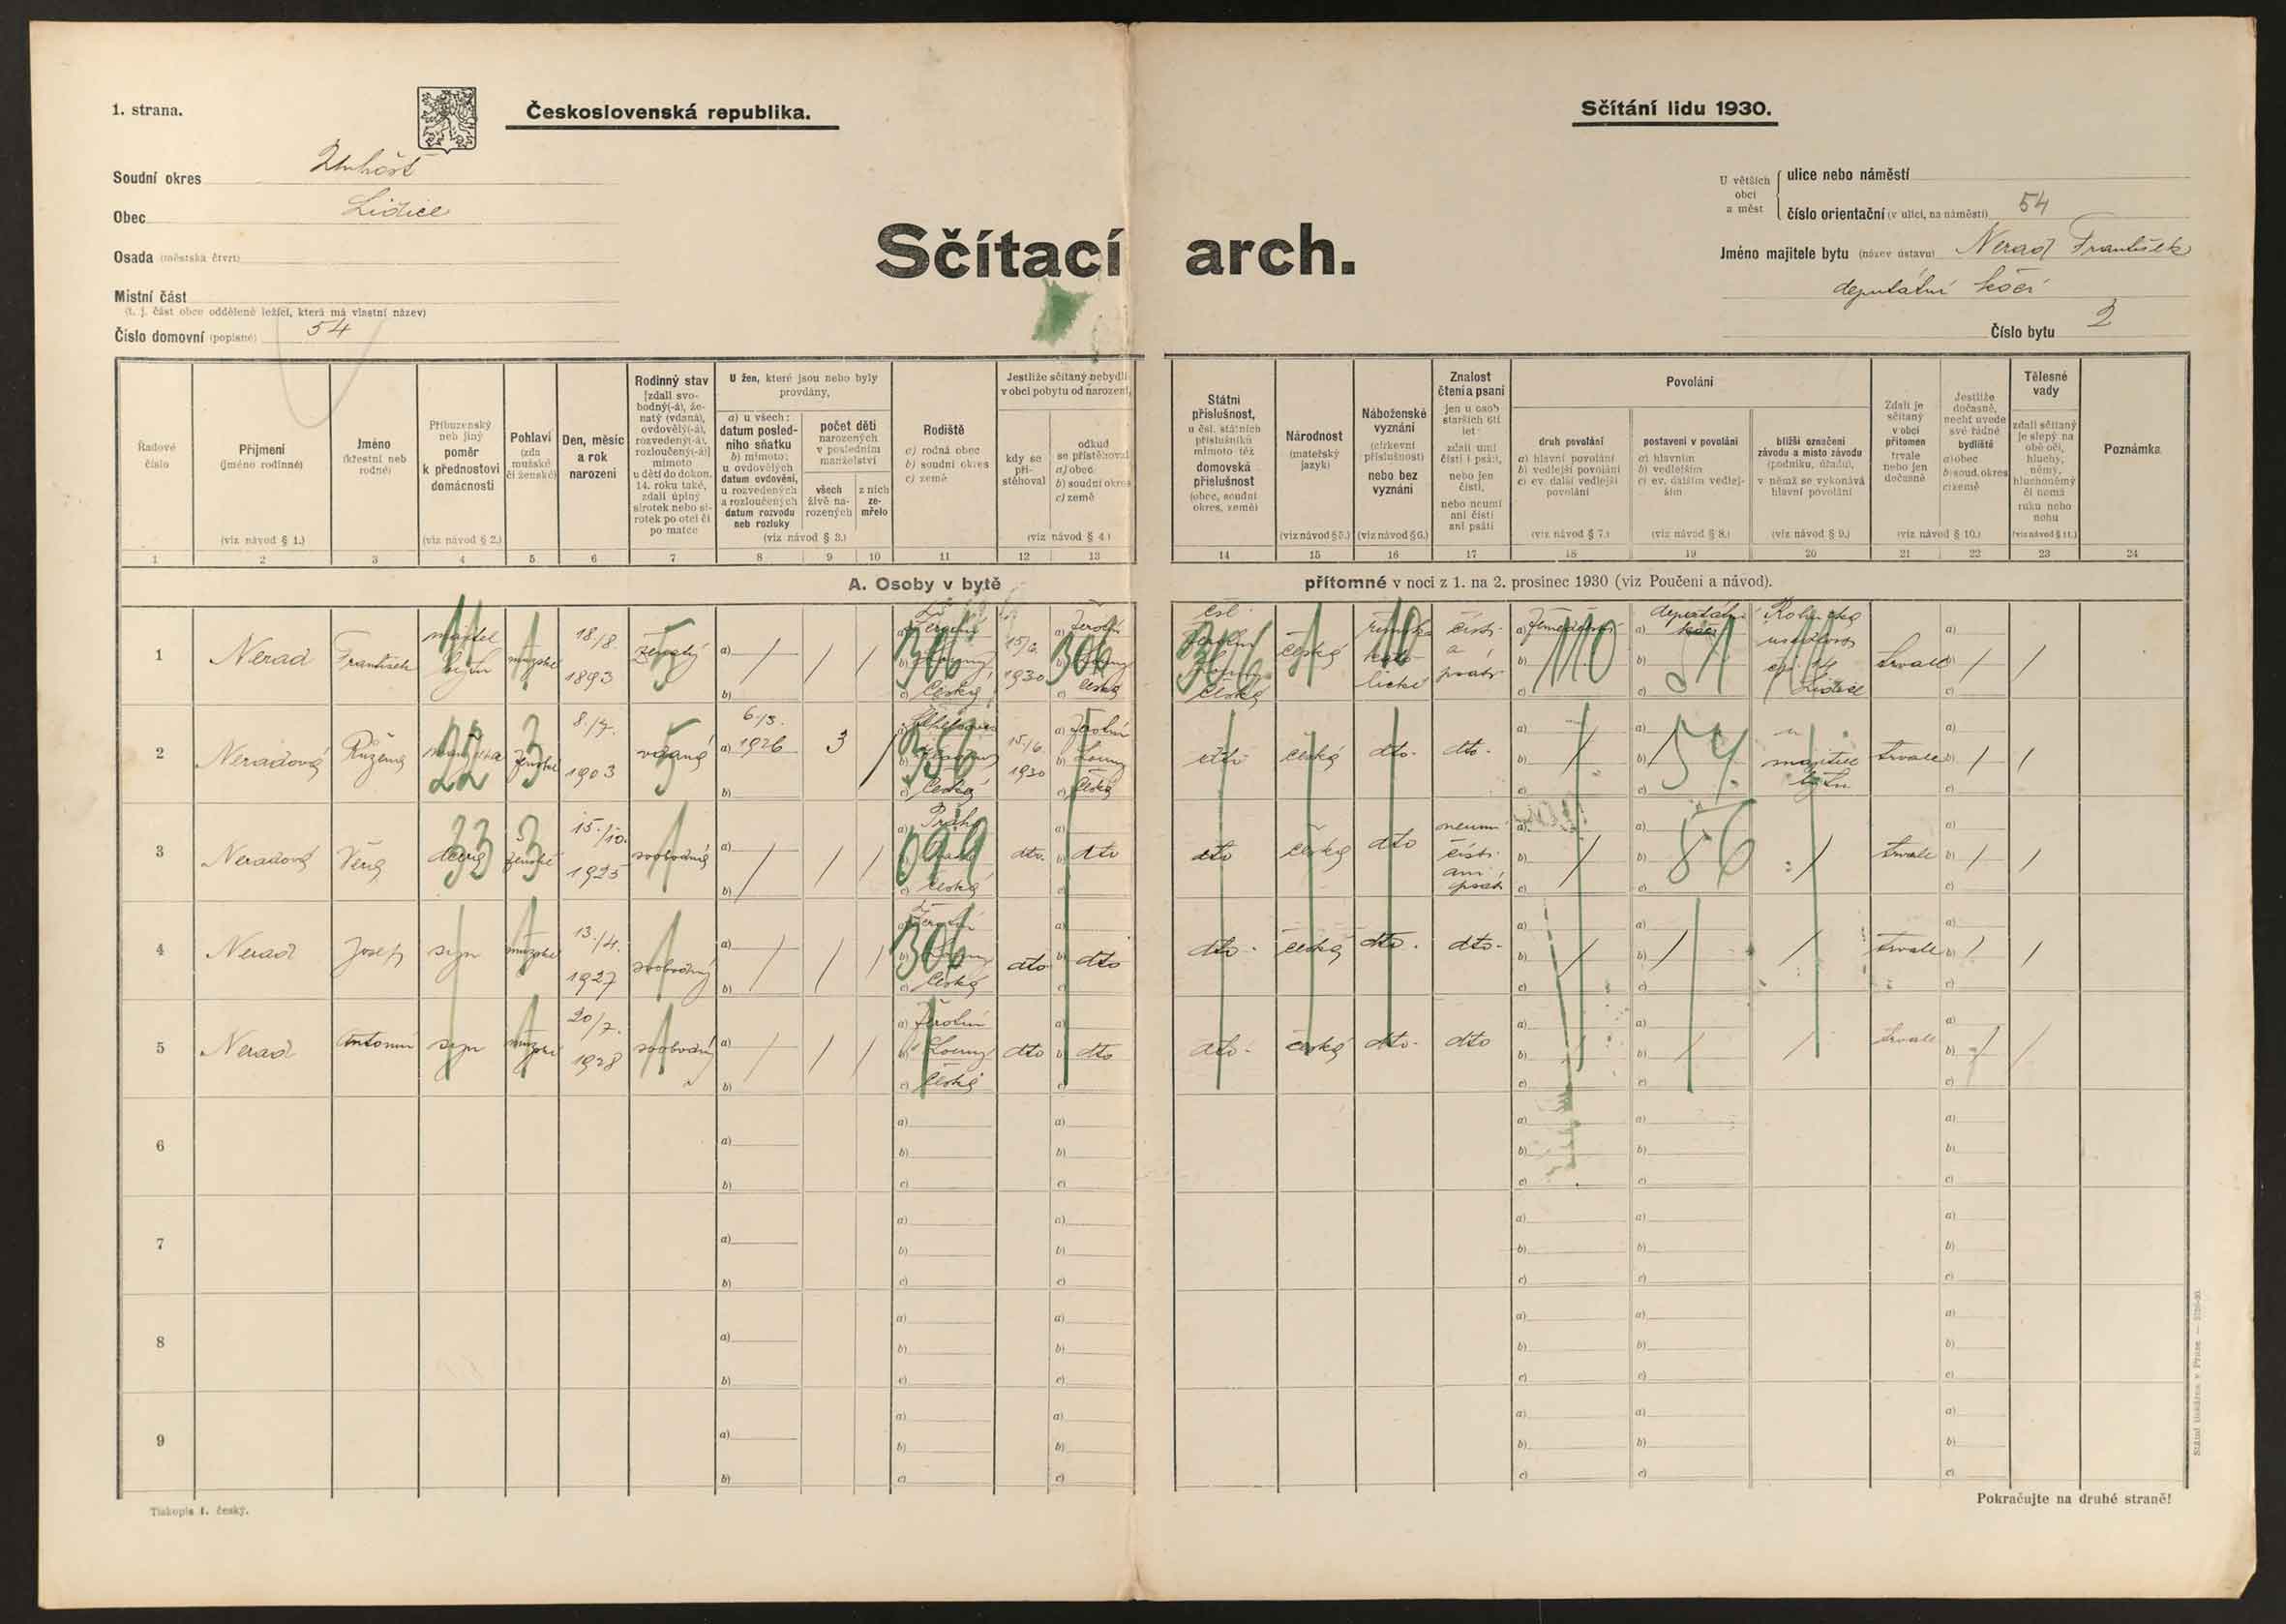 1. strana.
Československá republika.
Sčítání lidu 1930.
Soudní okres Unhošť
Obec Lidice
Osada (městská čtvrť)
Místní část
(t. j. část obce odděleně ležící, která má vlastní název)
Číslo domovní (popisné) 54
Sčítací arch.
U větších obcí a měst
ulice nebo náměstí
číslo orientační (v ulici, na náměstí) 54
Jméno majitele bytu (název ústavu) Nerad František
deputátní kočí
Číslo bytu 2
Řadové číslo
Příjmení (jméno rodinné) (viz návod § 1.)
Jméno (křestní neb rodné)
Příbuzenský neb jiný poměr k přednostovi domácnosti (viz návod § 2.)
Pohlaví (zda mužské či ženské)
Den, měsíc a rok narození
Rodinný stav [zdali svobodný(-á), ženatý (vdaná), ovdovělý(-á), rozvedený(-á), rozloučený(-á)] mimoto u dětí do dokon. 14. roku také, zdali úplný sirotek nebo sirotek po otci či po matce
U žen, které jsou nebo byly provdány,
a) u všech: datum posledního sňatku b) mimoto: u ovdovělých datum ovdovění, u rozvedených a rozloučených datum rozvodu neb rozluky
počet dětí narozených v posledním manželství
všech živě narozených
z nich zemřelo
(viz návod § 3.)
Rodiště
a) rodná obec
b) soudní okres
c) země
Jestliže sčítaný nebydlí v obci pobytu od narození,
kdy se přistěhoval
odkud se přistěhoval a) obec b) soudní okres c) země
(viz návod § 4.)
Státní příslušnost, u čsl. státních příslušníků mimoto též domovská příslušnost (obec, soudní okres, země)
Národnost (mateřský jazyk) (viz návod § 5.)
Náboženské vyznání (církevní příslušnost) nebo bez vyznání (viz návod § 6.)
Znalost čtení a psaní jen u osob starších 6ti let: zdali umí čísti i psáti, nebo jen čísti, nebo neumí ani čísti ani psáti
Povolání
druh povolání
a) hlavní povolání
b) vedlejší povolání
c) ev. další vedlejší povolání
(viz návod § 7.)
postavení v povolání
a) hlavním
b) vedlejším
c) ev. dalším vedlejším
(viz návod § 8.)
bližší označení závodu a místo závodu (podniku, úřadu), v němž se vykonává hlavní povolání
(viz návod § 9.)
Zdali je sčítaný v obci přítomen trvale nebo jen dočasně
Jestliže dočasně, nechť uvede své řádné bydliště a) obec b) soud. okres c) země
(viz návod § 10.)
Tělesné vady
zdali sčítaný je slepý na obě oči, hluchý, němý, hluchoněmý či nemá ruku nebo nohu
(viz návod § 11.)
Poznámka
1 2 3 4 5 6 7 8 9 10 11 12 13 14 15 16 17 18 19 20 21 22 23 24
A. Osoby v bytě přítomné v noci z 1. na 2. prosinec 1930 (viz Poučení a návod).
1 Nerad František majitel bytu mužské 18./8. 1893 ženatý Česká 15/6. 1930 Žerotín Česká
čsl. Česká česká římsko katolické čísti a psáti zemědělství deputátní kočí usedlost čp. 14 Lidice trvale
2 Neradová Růžena manželka ženské 8./7. 1903 vdaná 6./3. 1926 3 Česká 15./6. 1930 Žerotín Louny Česká
česká dto. dto. majitele bytu trvale
3 Neradová Věra dcera ženské 15./10. 1925 svobodná Praha Česká dto. dto
dto česká dto neumí čísti ani psáti trvale
4 Nerad Josef syn mužské 13./4. 1927 svobodný Žerotín Louny Česká dto dto
dto. česká dto. dto. trvale
5 Nerad Antonín syn mužské 20/7. 1928 svobodný Žerotín Louny Česká dto dto
dto. česká dto. dto trvale
6
7
8
9
Tiskopis I. český.
Pokračujte na druhé straně!